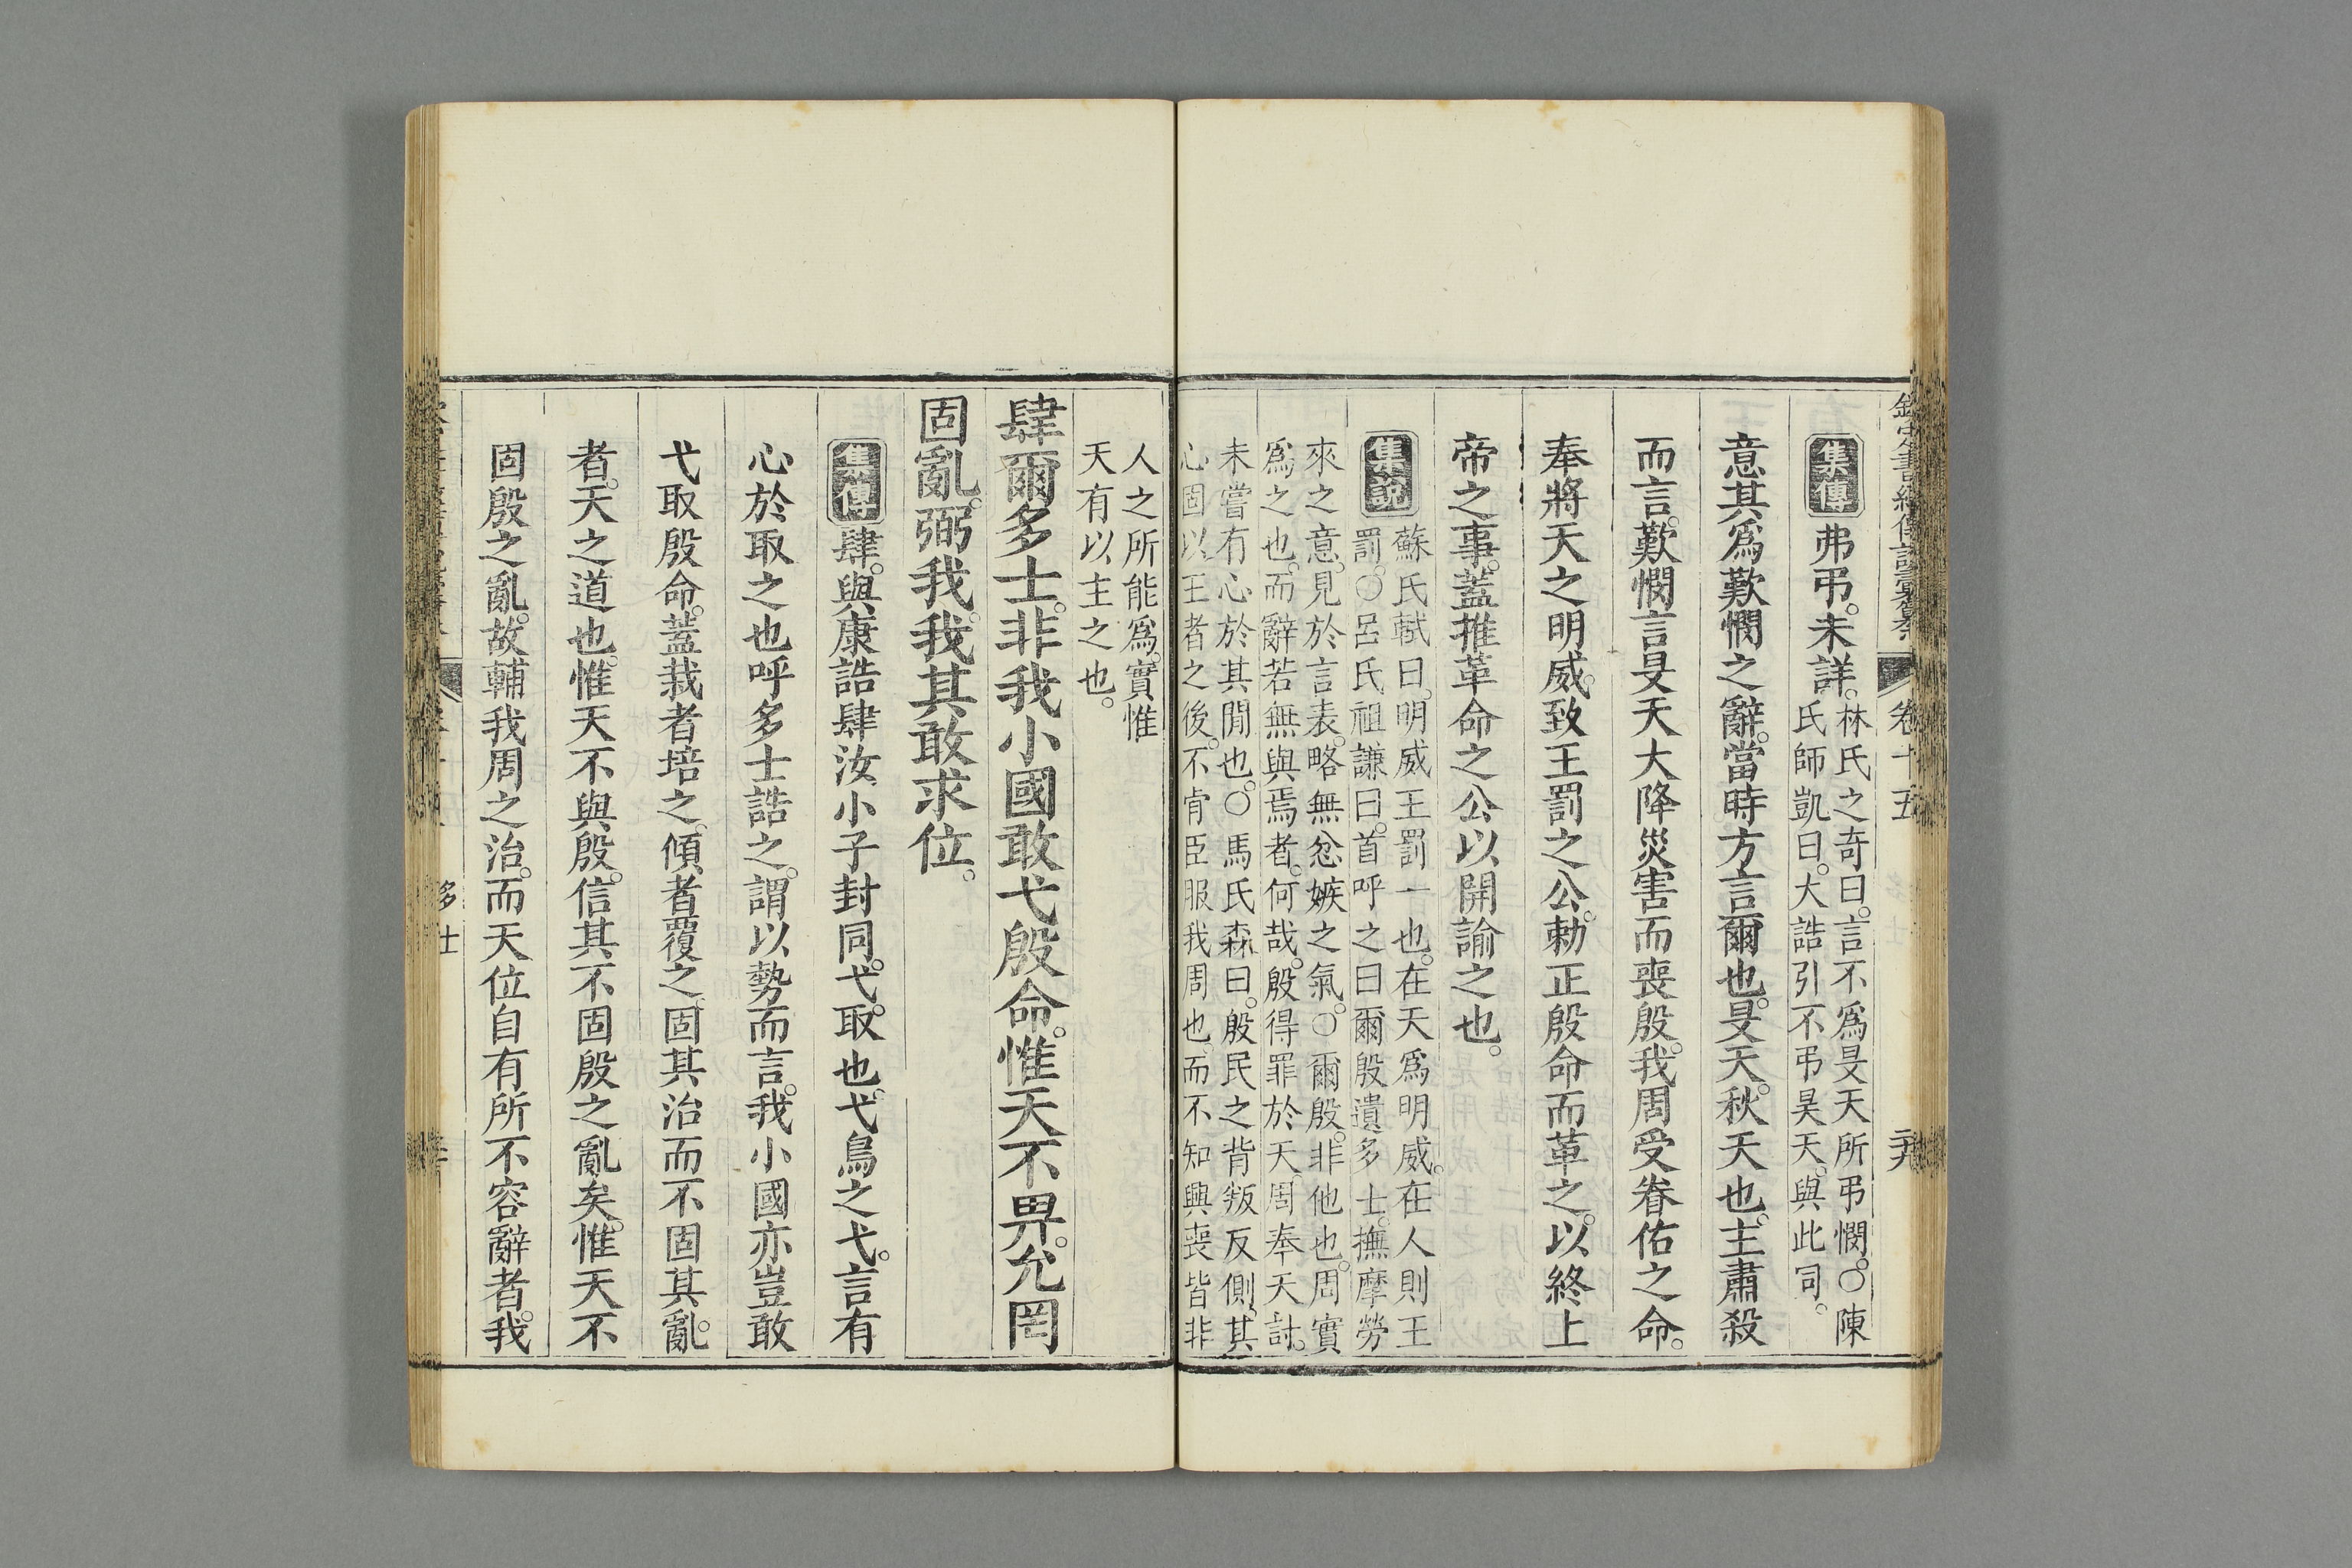 欽定書經傳說彙纂 卷十五
集傳 弗弔。未詳。林氏之奇曰。言不爲旻天所弔憫。○陳
氏師凱曰。大誥引不弔昊天。與此同。
意其爲歎憫之辭。當時方言爾也。旻天。秋天也。主肅殺
而言。歎憫言旻天大降災害而喪殷。我周受眷佑之命。
奉將天之明威。致王罰之公。勅正殷命而革之。以終上
帝之事。蓋推革命之公以開諭之也。
集說 蘇氏軾曰。明威王罰一也。在天爲明威。在人則王
罰。○呂氏祖謙曰。首呼之曰爾殷遺多士。撫摩勞
來之意。見於言表。略無忿嫉之氣。○爾殷。非他也。周實
爲之也。而辭若無與焉者。何哉。殷得罪於天。周奉天討。
未嘗有心於其閒也。○馬氏森曰。殷民之背叛反側。其
心固以王者之後。不肯臣服我周也。而不知興喪皆非
人之所能爲。實惟
天有以主之也。
肆爾多士。非我小國敢弋殷命。惟天不畀。允罔
固亂。弼我。我其敢求位。
集傳 肆。與康誥肆汝小子封同。弋。取也。弋鳥之弋。言有
心於取之也呼多士誥之。謂以勢而言。我小國亦豈敢
弋取殷命。蓋栽者培之。傾者覆之。固其治而不固其亂。
者。天之道也。惟天不與殷。信其不固殷之亂矣。惟天不
固殷之亂。故輔我周之治。而天位自有所不容辭者。我
多士